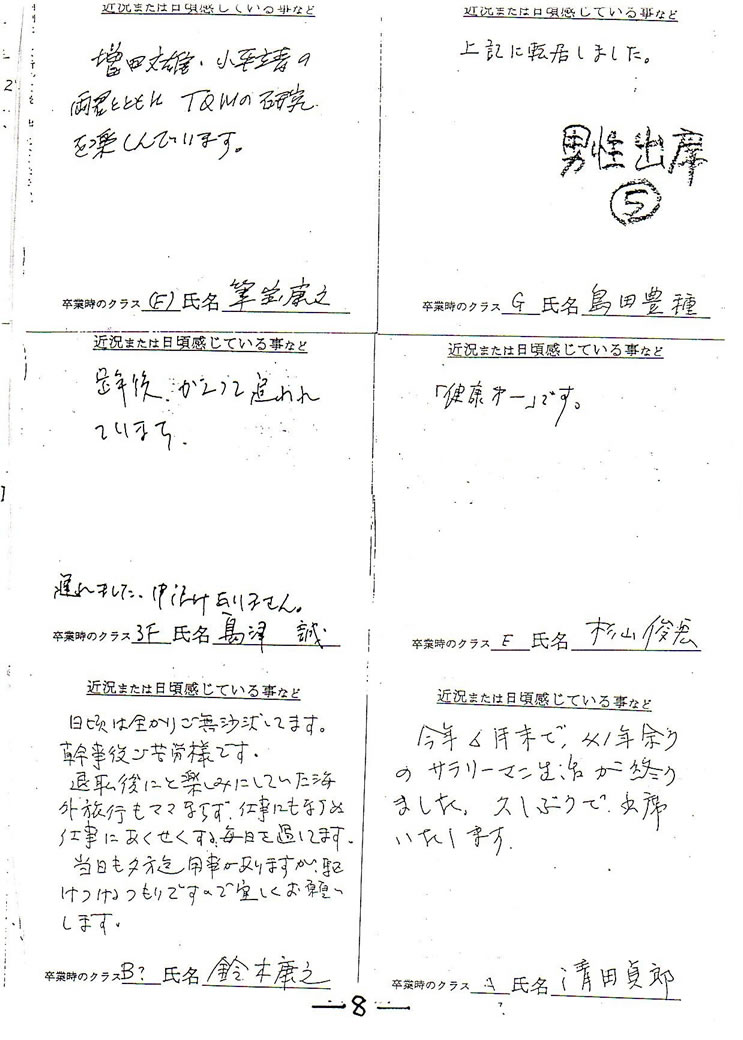 近況または日頃感じている事など
増田文雄・小平靖の
両君とともに TQMの研究
を楽しんでいます。
卒業時のクラス (E) 氏名 筆宝康之
近況または日頃感じている事など
上記に転居しました。
男性出席
⑤
卒業時のクラス G 氏名 島田豊穂
近況または日頃感じている事など
定年後、 追われ
ています。
遅れました、申し訳けありません。
卒業時のクラス 3F 氏名 島津 誠
近況または日頃感じている事など
「健康第一」です。
卒業時のクラス E 氏名 杉山俊宏
近況または日頃感じている事など
日頃は全かりご無沙汰してます。
幹事役ご苦労様です。
退職後にと楽しみにしていた海
外旅行もママならず、仕事にもならぬ
仕事にあくせくする毎日を過してます。
当日も夕方迄用事がありますが、駆
けつけるつもりですので宜しくお願い
します。
卒業時のクラス B? 氏名 鈴木康之
近況または日頃感じている事など
今年6月末で、41年余り
のサラリーマン生活が終り
ました。久しぶりで、出席
いたします。
卒業時のクラス A 氏名 清田貞郎
—8—